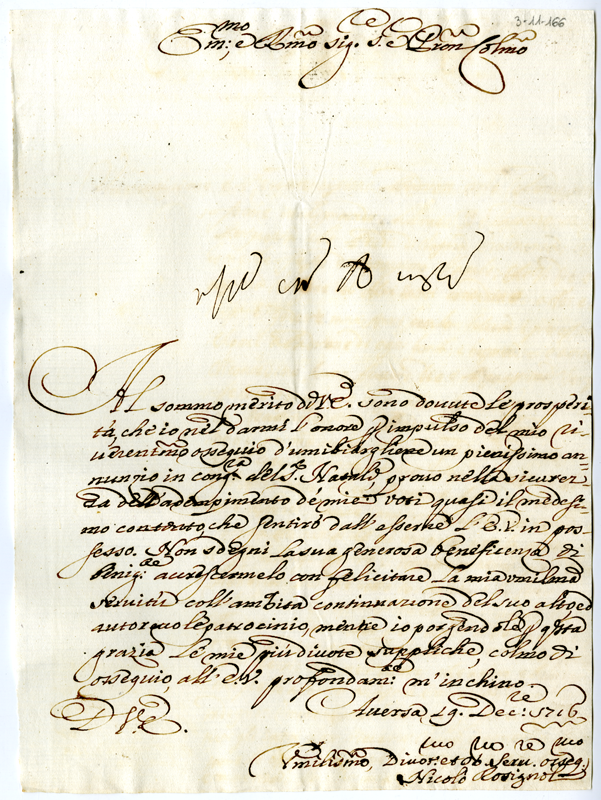 3-11-166
Em:mo e Rmo sig.r S.r e Pron Colmo
Al sommo merito di V.E. sono dovute le prosperi
tà, che io nel darmi l'onore p impulso del mio ri-
verentmo ossequio d'umiliargliene un pienissimo an-
nunzio in cong.ra del S. Natale, provo nella sicurez-
za dell'adempimento de miei voti quasi il medesi-
mo contento, che sentirò dall'esserne l'E.V. in pos-
sesso. Non sdegni la sua generosa beneficenza di
benig:te accrescermelo con felicitare la mia umilma
servitù coll'ambita continuazione del suo alto, ed
autorevole patrocinio, mentre io porgendole p qsta
grazia le mie più divote suppliche, colmo di
ossequio, all'E.V. profondam:te m'inchino.
Aversa 19. Dec:re 1716
D V.E.
Umilissmo, Divot.mo et ob.mo Serv.re osseq.mo
Nicolò Rosignol